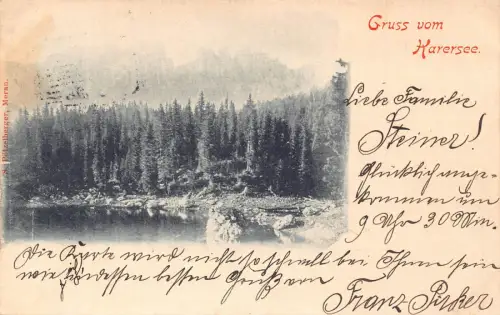 Gruss vom
Karersee.
Liebe Familie
Steiner!
Glücklich ange-
kommen um
9 Uhr 30 Min.
Die Karte wird nicht so schnell bei Ihnen sein
wir indessen besten Gruß von
Franz
Meran.